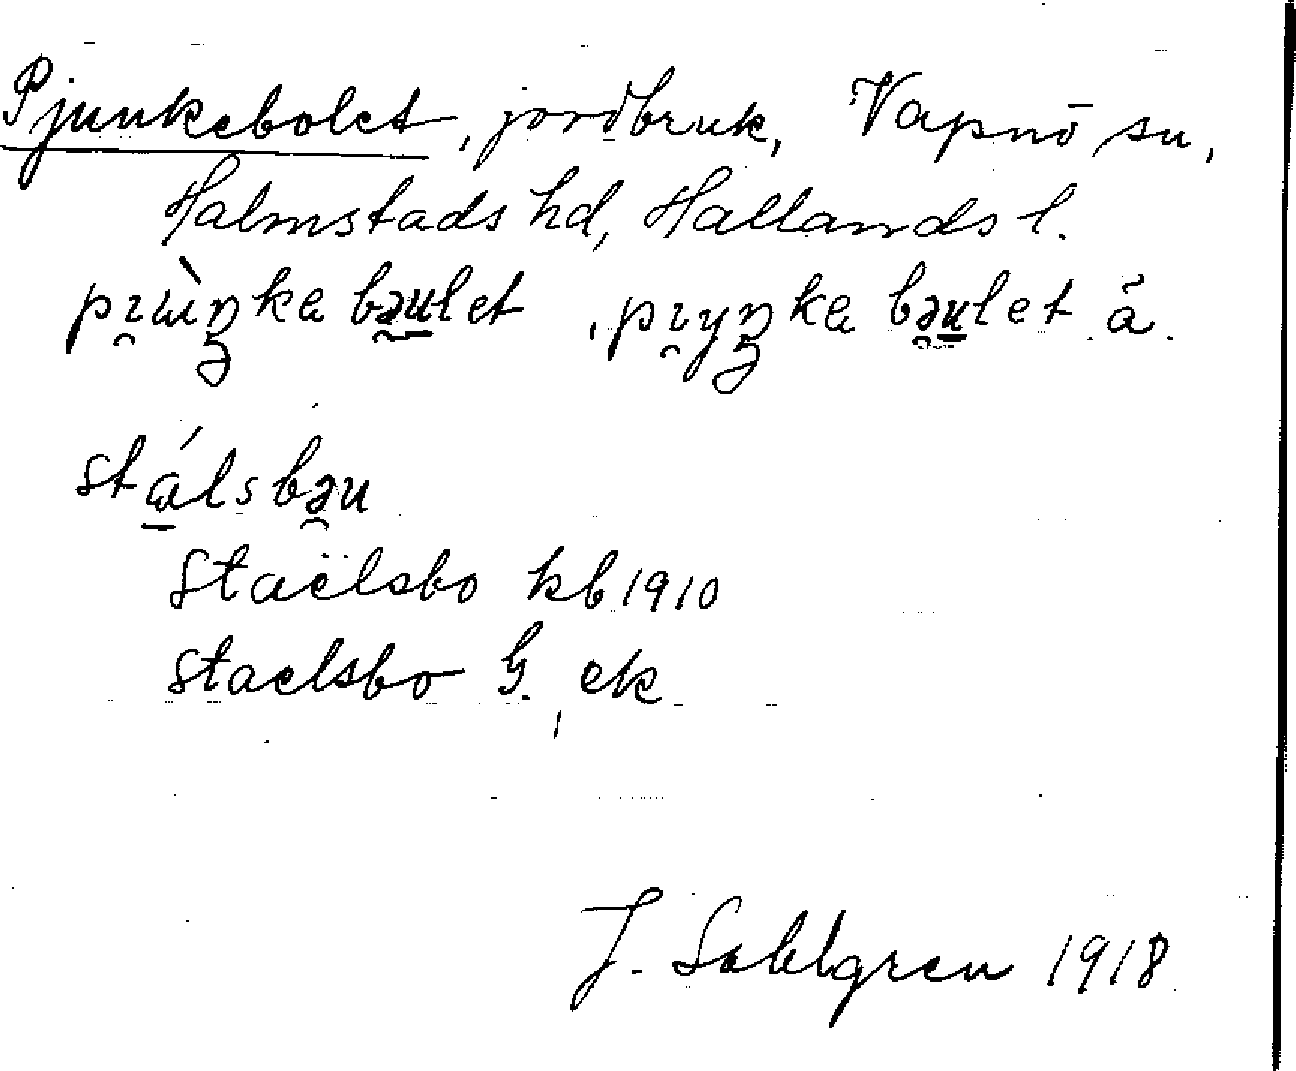 Pjunkebolet, jordbruk, Vapnö sn,
Halmstads hd, Hallands l.
pɪ̯ɯ̀ŋka bə̯u̲let , pɪ̯yŋka bə̯u̲let á.
stά̲lsbə̯u
Staëlsbo kb 1910
Staelsbo G. ek
J. Sahlgren 1918